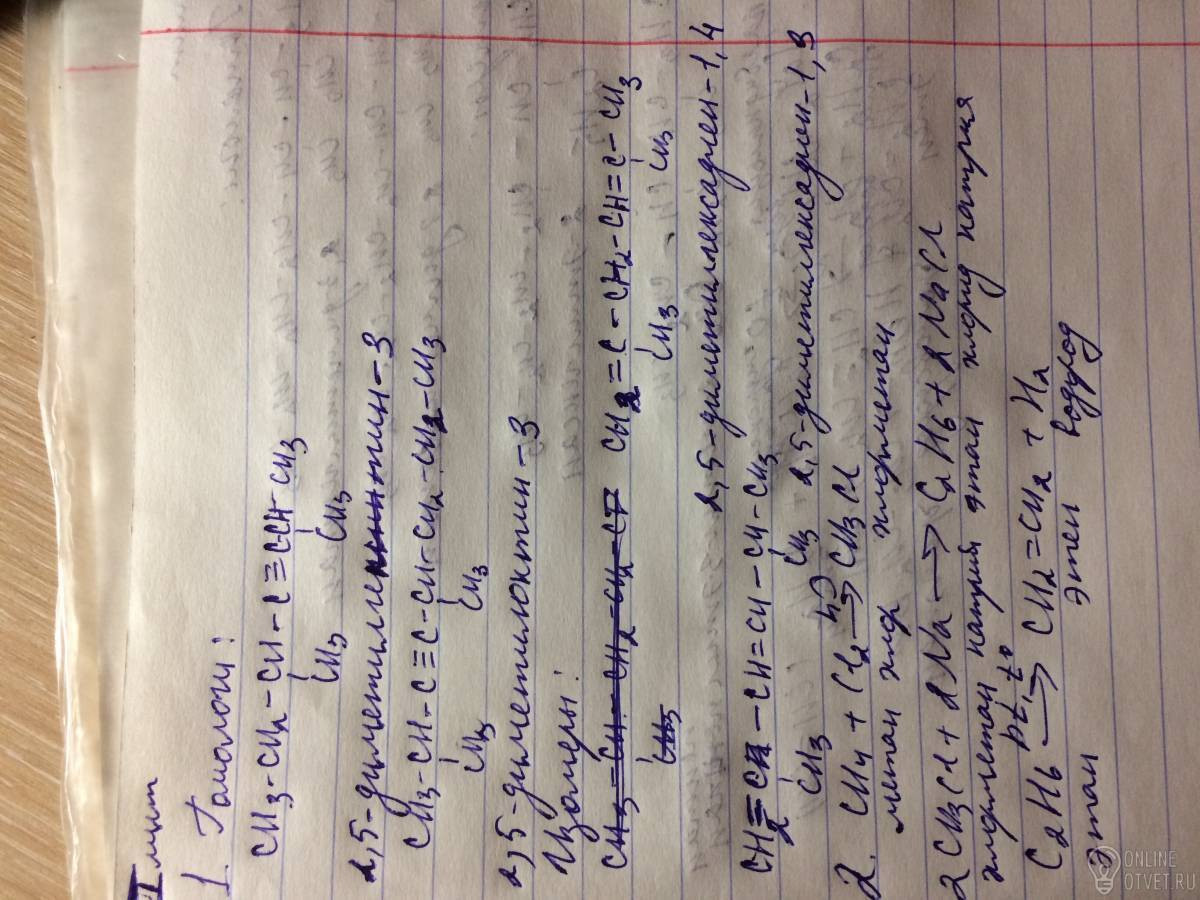 1. Гамологи:
CH3-CH2-CH-C≡C-CH-CH3
CH3 CH3
CH3-CH-C≡C-CH-CH2-CH2-CH3
CH3 CH3
2,5-диметилоктин-3
Изомеры:
CH2=C-CH2-CH=C-CH3
CH3 CH3
2,5-диметилгексадиен-1,4
CH2=C-CH=CH-CH-CH3
CH3 CH3 2,5-диметилгексадиен-1,3
2. CH4 + Cl2 hν→ CH3Cl
метан хлор хлорметан
2CH3Cl + 2Na → C2H6 + 2NaCl
хлорметан натрий этан хлорид натрия
C2H6 Pt, t° → CH2=CH2 + H2
этан этен водород
ONLINE
OTVET.RU